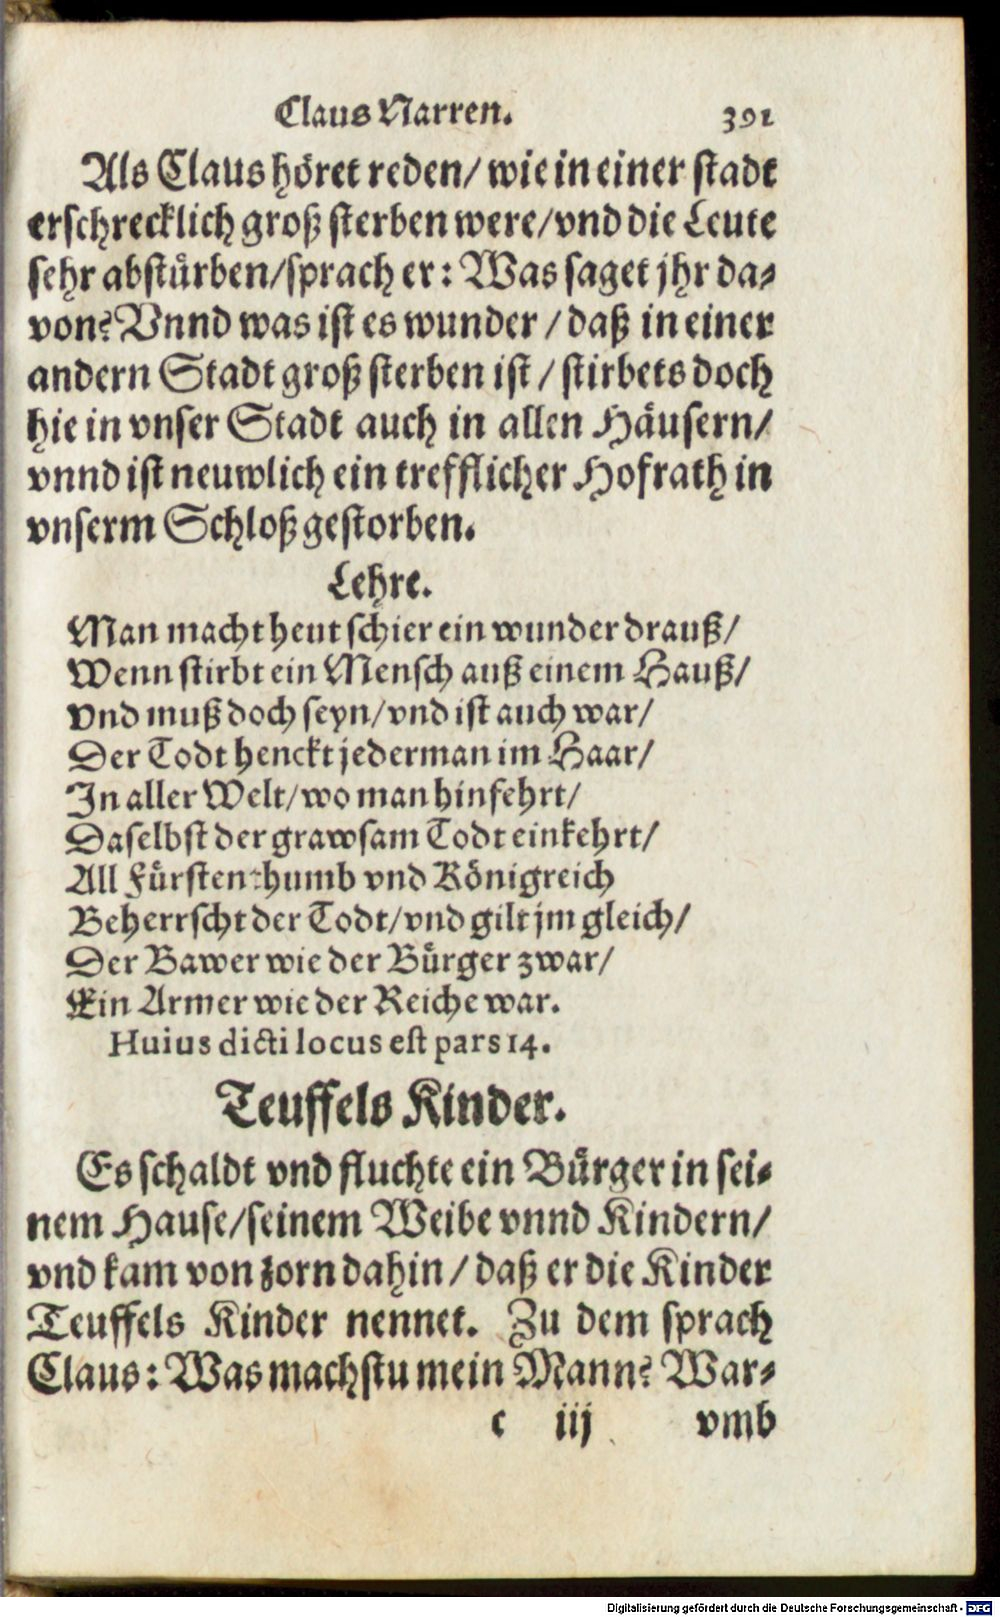 Claus Narren. 391
Als Claus höret reden/ wie in einer stadt
erschrecklich groß sterben were/vnd die Leute
sehr abstürben/sprach er: Was saget jhr da-
von? Vnnd was ist es wunder / daß in einer
andern Stadt groß sterben ist / stirbets doch
hie in vnser Stadt auch in allen Häusern/
vnnd ist neuwlich ein trefflicher Hofrath in
vnserm Schloß gestorben.
Lehre.
Man macht heut schier ein wunder drauß/
Wenn stirbt ein Mensch auß einem Hauß/
Vnd muß doch seyn/vnd ist auch war/
Der Todt henckt jederman im Haar/
In aller Welt/wo man hinfehrt/
Daselbst der grawsam Todt einkehrt/
All Fürstenthumb vnd Königreich
Beherrscht der Todt/vnd gilt jm gleich/
Der Bawer wie der Bürger zwar/
Ein Armer wie der Reiche war.
Huius dicti locus est pars 14.
Teuffels Kinder.
Es schaldt vnd fluchte ein Bürger in sei-
nem Hause/seinem Weibe vnnd Kindern/
vnd kam von zorn dahin / daß er die Kinder
Teuffels Kinder nennet. Zu dem sprach
Claus: Was machstu mein Mann? War-
c iij vmb
Digitalisierung gefördert durch die Deutsche Forschungsgemeinschaft - DFG